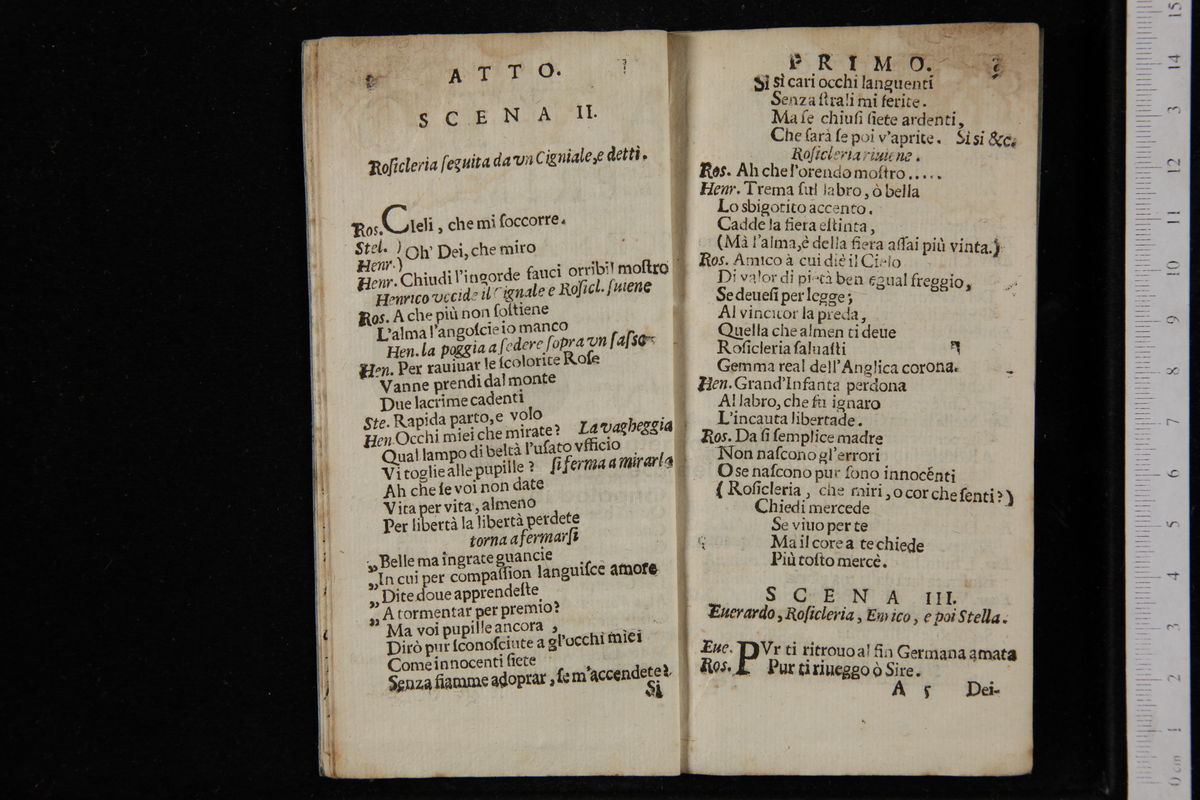 ATTO.
SCENA II.
Roſicleria ſeguita da vn Cigniale, e detti.
Ros. Cleli, che mi ſoccorre.
Stel. )
Henr. ) Oh' Dei, che miro
Henr. Chiudi l'ingorde fauci orribil moſtro
Henrico vccide il Cignale e Roſicl. ſuiene
Ros. A che più non ſoſtiene
L'alma l'angoſcie io manco
Hen. la poggia a ſedere ſopra vn ſaſſo
Hen. Per rauiuar le ſcolorite Roſe
Vanne prendi dal monte
Due lacrime cadenti
Ste. Rapida parto, e volo
Hen. Occhi miei che mirate? La vagheggia
Qual lampo di beltà l'uſato vfficio
Vi toglie alle pupille? ſi ferma a mirarla
Ah che ſe voi non date
Vita per vita, almeno
Per libertà la libertà perdete
torna a fermarſi
„ Belle ma ingrate guancie
„ In cui per compaſſion languiſce amore
„ Dite doue apprendeſte
„ A tormentar per premio?
Ma voi pupille ancora,
Dirò pur ſconoſciute a gl'occhi miei
Come innocenti ſiete
Senza fiamme adoprar, ſe m'accendete?
Si
PRIMO.
Si sì cari occhi languenti
Senza ſtrali mi ferite.
Ma ſe chiuſi ſiete ardenti,
Che ſarà ſe poi v'aprite. Si si &c.
Roſicleria riuiene.
Ros. Ah che l'orendo moſtro .....
Henr. Trema ſul labro, ò bella
Lo sbigotito accento.
Cadde la fiera eſtinta,
(Mà l'alma, è della fiera aſſai più vinta.)
Ros. Amico à cui diè il Cielo
Di valor di pietà ben egual freggio,
Se deueſi per legge;
Al vincitor la preda,
Quella che almen ti deue
Roſicleria ſaluaſti
Gemma real dell'Anglica corona.
Hen. Grand'Infanta perdona
Al labro, che fù ignaro
L'incauta libertade.
Ros. Da ſi ſemplice madre
Non naſcono gl'errori
O se naſcono pur ſono innocénti
( Roſicleria, che miri, o cor che ſenti? )
Chiedi mercede
Se viuo per te
Ma il core a te chiede
Più toſto mercè.
SCENA III.
Euerardo, Roſicleria, Enrico, e poi Stella.
Eue. PVr ti ritrouo al fin Germana amata
Ros. Pur ti riueggo ò Sire.
A 5 Dei-